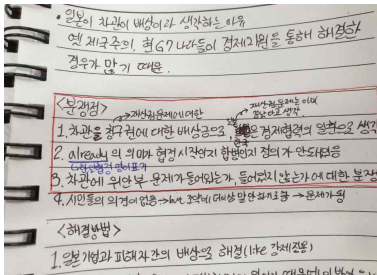 • 일본이 차관이 배상이라 생각하는 이유
옛 제국주의, 현 G7 나라들이 경제지원을 통해 해결한
경우가 많기 때문.
<분쟁점>
재산권문제에 대한
재산권문제는 이미
1. 차관을 청구권에 대한 배상금으로, 은 경제협력의 일환으로 생각
2. already의 의미가 협정시작인지 합병인지 정의가 안되었음
3. 차관에 위안부 문제가 들어있는가, 들어있지 않는가에 대한 분쟁
4. 시민들의 의견이 없음 → but, 조약에 대해 → 문제가 됨
<해결방법>
1. 일본기업과 피해자간의 배상으로 해결 (like 강제징용)